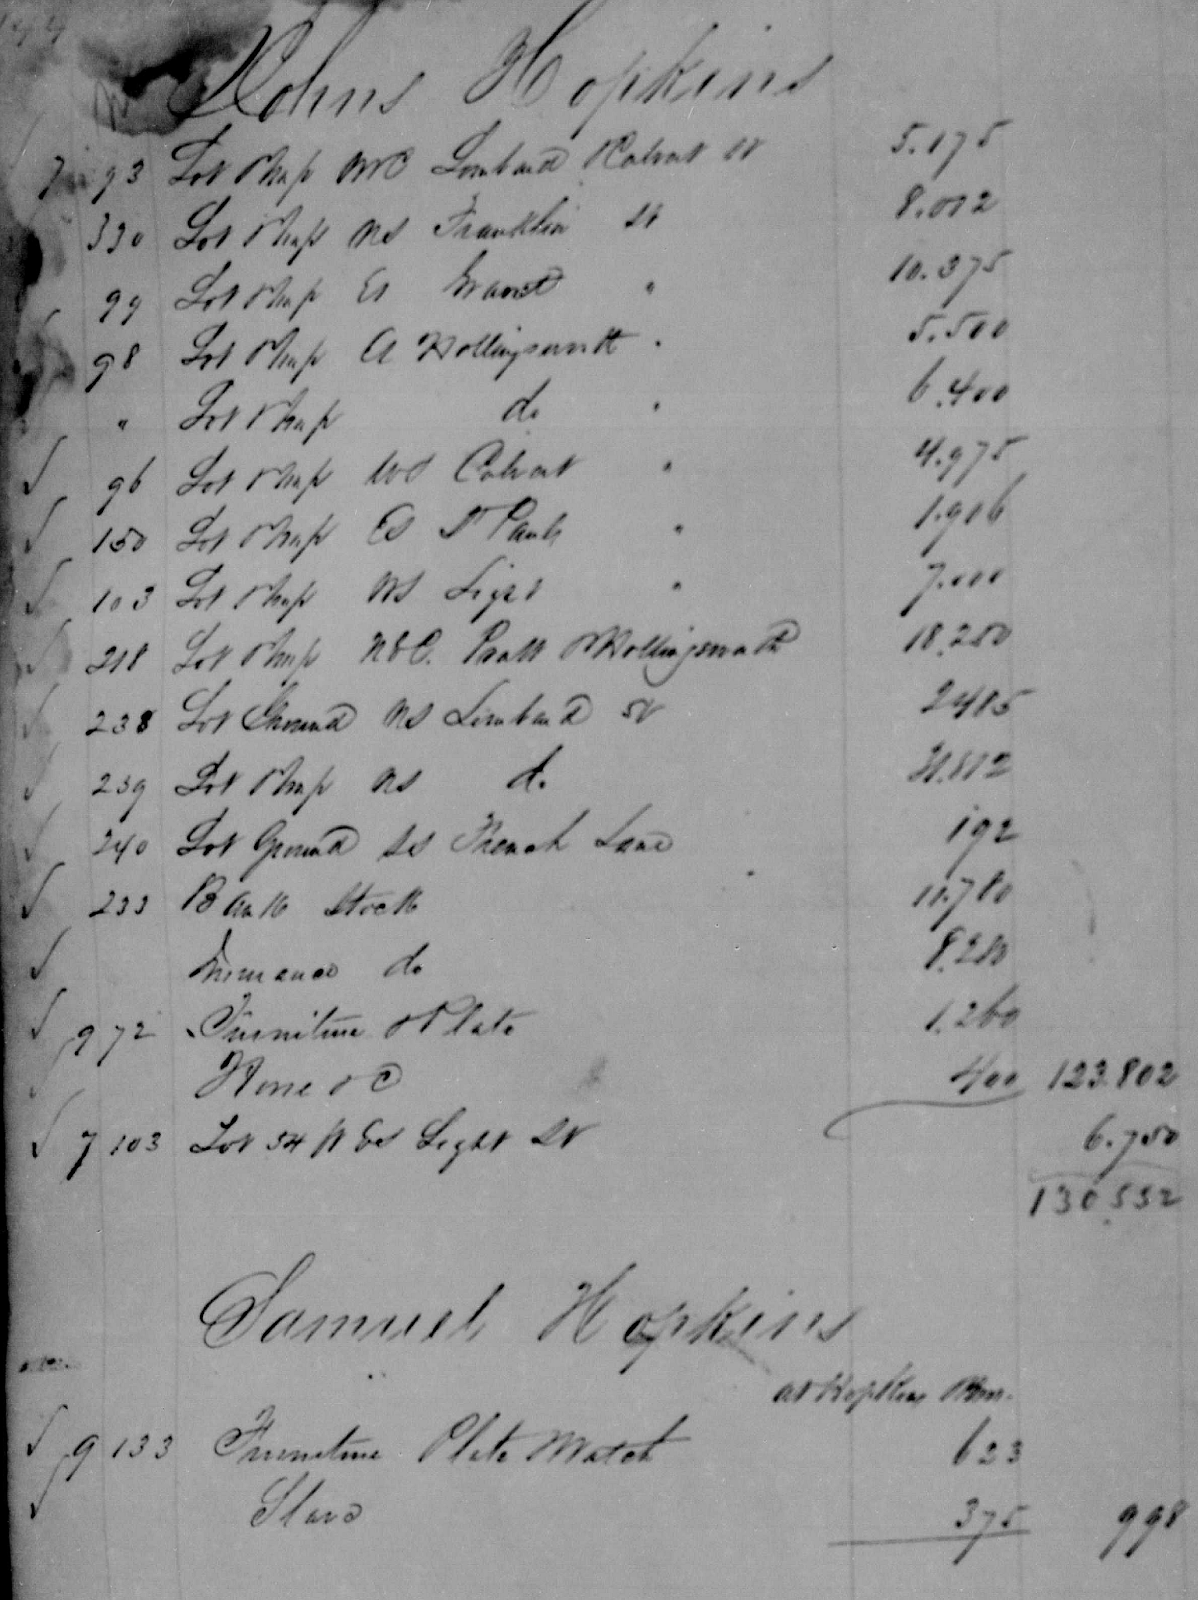 Johns Hopkins
7 93 Lot & Imp NWC Lombard & Calvert St 5.175
330 Lot & Imp NS Franklin St 8.012
99 Lot & Imp ES Grant " 10.375
98 Lot & Imp A Hollingsworth " 5.500
" Lot & Imp do " 6.400
96 Lot & Imp WS Calvert " 4.975
150 Lot & Imp ES St Pauls " 1.906
103 Lot & Imp WS Light " 7.000
218 Lot & Imp NEC. Pratt & Hollingsworth 18.250
238 Lot Ground NS Lombard St 2485
239 Lot & Imp NS do
240 Lot Ground SS French Lane 192
233 Bank Stock 11.780
Insurance do 8.280
9 72 Furniture & Plate 1.260
Horse &C 400 123.802
7 103 Lot 54 ft ES Light St 6.750
130.552
Samuel Hopkins
at Hopkins
9 133 Furniture Plate Watch 623
Slave 375 998